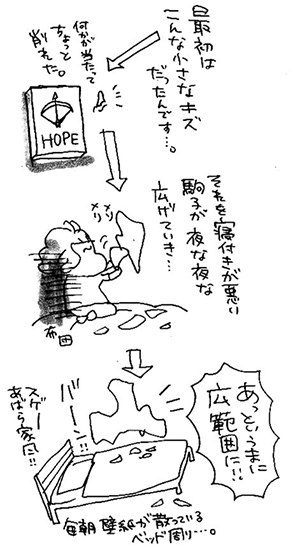 最初は
こんな小さなキズ
だったんです…。
何かが当たって
ちょっと
削れた。
HOPE
それを寝付きが悪い
駒子が夜な夜な
広げていき…
メリ
メリ
布団
あっというまに
広範囲に!!
バーン!!
スゲー
あばら家だ!!
毎朝壁紙が散っている
ベッド周り…。